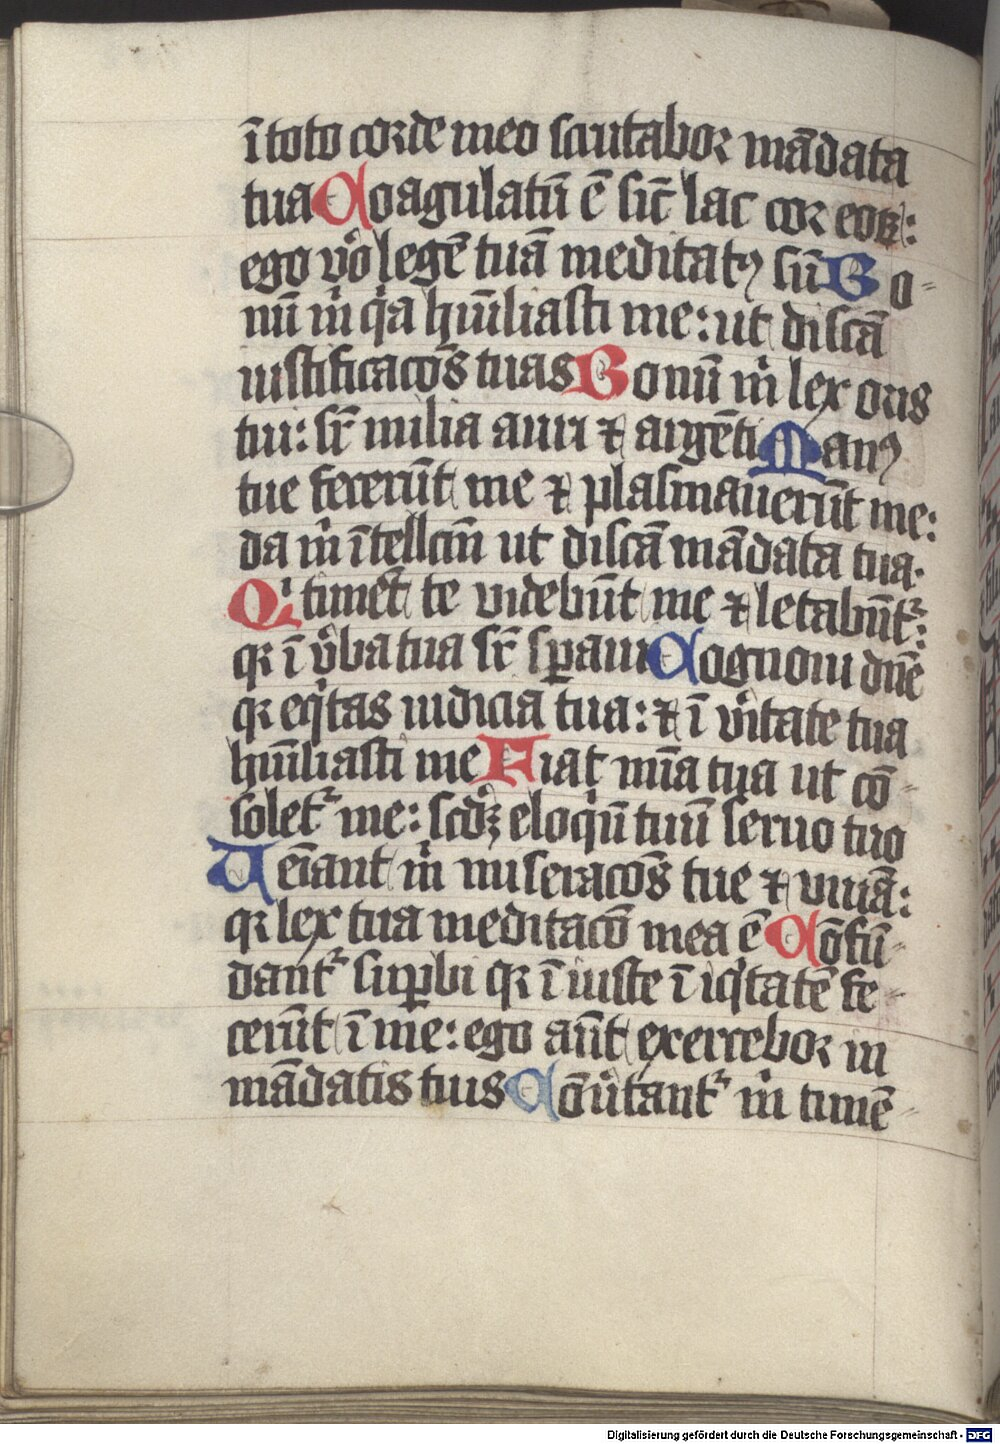 ī toto corde meo scrutabor mādata
tua Coagulatū ē sic̄ lac cor eoꝝ:
ego v̊o legē tuā meditatꝰ sū Bo-
nū m̍ qꝛa hūiliasti me: ut discā
iustificac̄oēs tuas Bonū m̍ lex oris
tui: sr̄ milia auri ⁊ argēti Manꝰ
tue fecerūt me ⁊ plasmauerūt me:
da m̍ ītellc̄m ut discā mādata tua.
Qͥ timēt te videbūt me ⁊ letabūtᷣ:
qꝛ ī v̍ba tua sr̄ sꝑaui Cognoui dn̄e
qꝛ eqͥtas iudicia tua: ⁊ ī v̍itate tua
hūiliasti me Fiat mīa tua ut cō-
soletᷣ me: scd̄ꝫ eloqͥū tuū seruo tuo
Ueīant m̍ miserac̄oēs tue ⁊ viuā:
qꝛ lex tua meditac̄o mea ē Cōfū-
dantᷣ suꝑbi qꝛ ī iuste ī iqͥtatē fe-
cerūt ī me: ego aūt exercebor in
mādatis tuis Cōu̍tantᷣ m̍ timē-
Digitalisierung gefördert durch die Deutsche Forschungsgemeinschaft - DFG